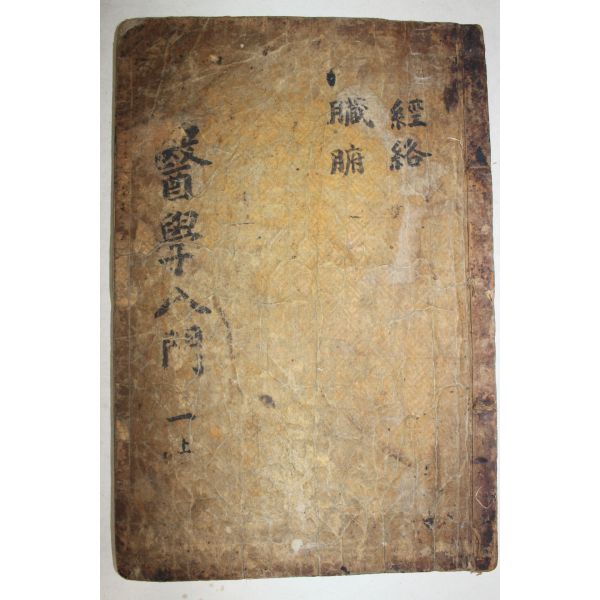 經絡
臟腑
醫學入門
一上